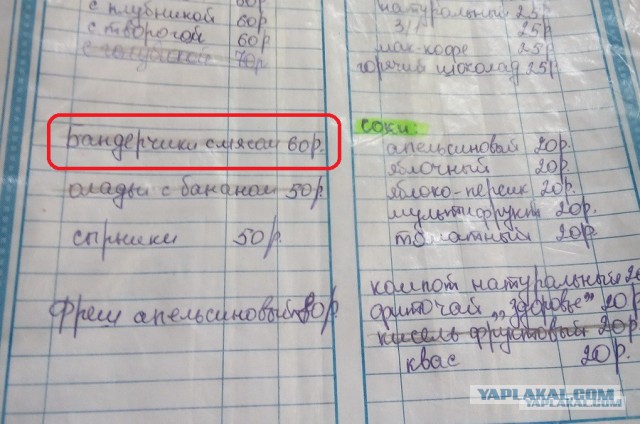 с клубникой 60р
с творогом 60р
Бандерчики с мясом 60р.
оладьи с бананом 50р.
сырники 50р.
Фреш апельсиновый 80р.
натуральный 25р
3/1 25р
мак-кофе 25р
горячий шоколад 25р.
соки:
апельсиновый 20р.
яблочный 20р.
яблоко-персик 20р.
мультифрукт 20р.
томатный 20р.
компот натуральный
фиточай „здоровье” 20р.
кисель фруктовый 20р.
квас 20р.
YAPLAKAL.COM
YAPLAKAL.COM